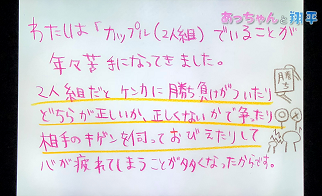 あっちゃんと翔平
わたしは「カップル(2人組)でいることが
年々苦手になってきました。
2人組だとケンカに勝ち負けがついたり
どちらが正しいか、正しくないかで争ったり
相手のキゲンを伺っておびえたりして
心が疲れてしまうことが多くなったからです。
勝ち